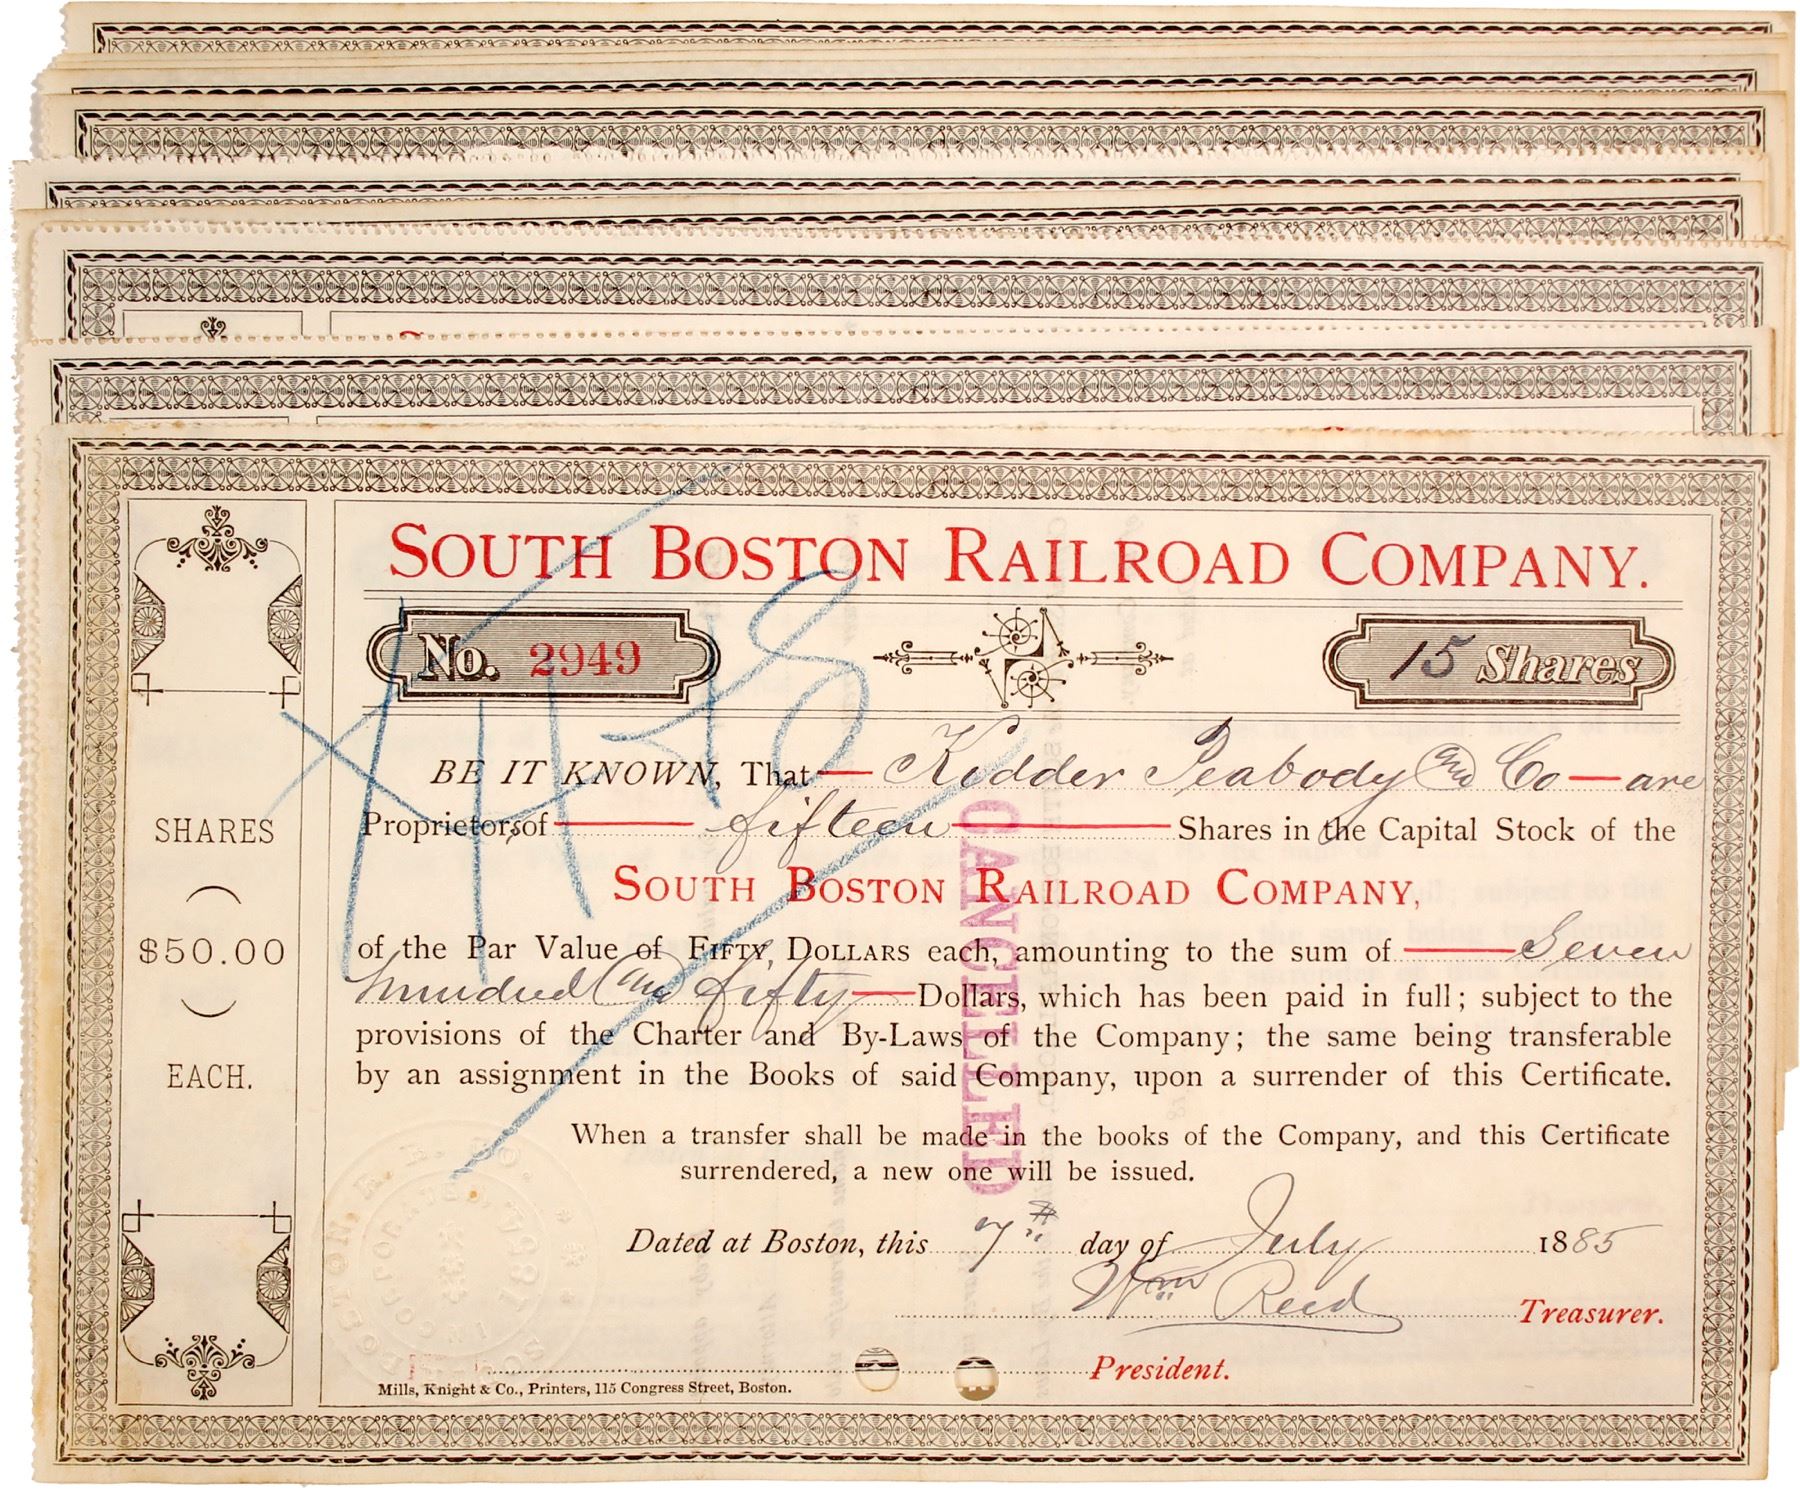 SOUTH BOSTON RAILROAD COMPANY.
No. 2949
15 Shares
SHARES
$50.00
EACH.
BE IT KNOWN, That Kidder Peabody and Co are
Proprietors of fifteen Shares in the Capital Stock of the
SOUTH BOSTON RAILROAD COMPANY,
of the Par Value of FIFTY DOLLARS each, amounting to the sum of Seven
hundred and fifty Dollars, which has been paid in full; subject to the
provisions of the Charter and By-Laws of the Company; the same being transferable
by an assignment in the Books of said Company, upon a surrender of this Certificate.
When a transfer shall be made in the books of the Company, and this Certificate
surrendered, a new one will be issued.
Dated at Boston, this 7th day of July 1885
Wm Reed Treasurer.
President.
Mills, Knight & Co., Printers, 115 Congress Street, Boston.
CANCELLED